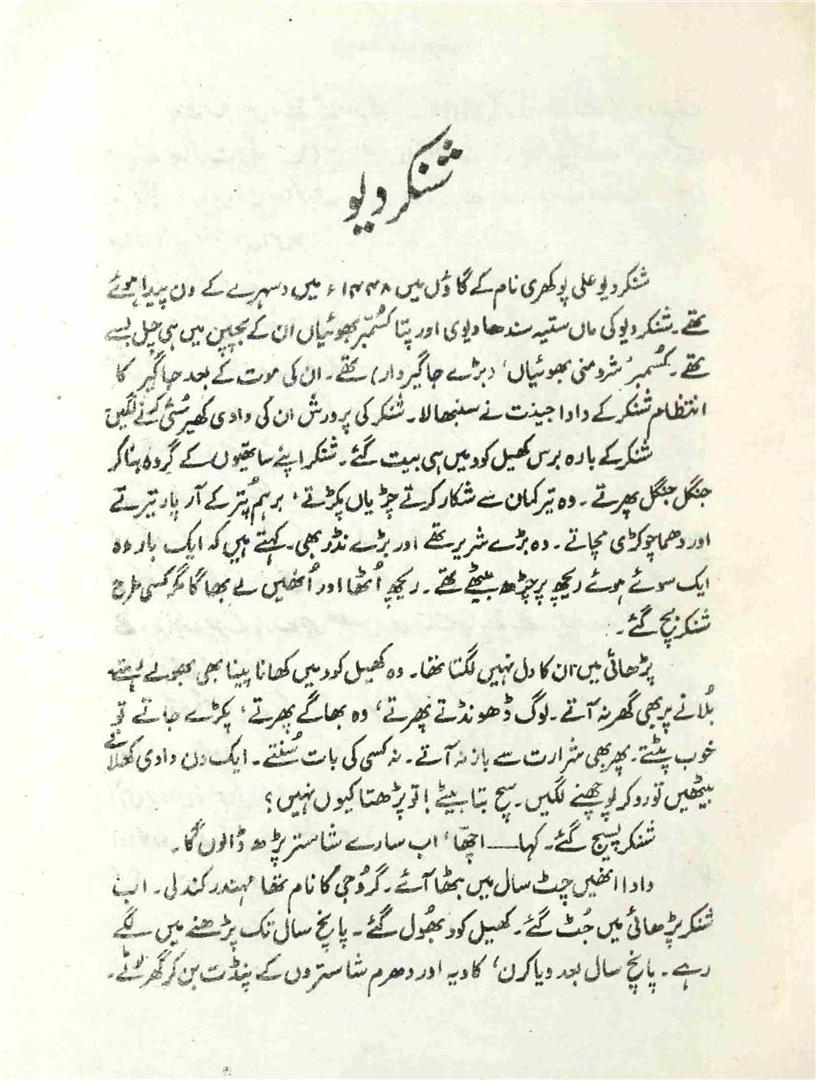 شنکر دیو
شنکر دیو علی پوکھری نام کے گاؤں میں ۱۴۴۸ء میں دسہرے کے دن پیدا ہوئے
تھے۔ شنکر دیو کی ماں ستیہ سندھا دیوی اور پتا کُسُمبر بھوئیاں ان کے بچپن میں ہی چل بسے
تھے۔ کُسُمبر ’شرومنی بھوئیاں‘ (بڑے جاگیردار) تھے۔ ان کی موت کے بعد جاگیر کا
انتظام شنکر کے دادا جینت نے سنبھالا۔ شنکر کی پرورش ان کی دادی کھیرسُتی کرنے لگیں
شنکر کے بارہ برس کھیل کود میں ہی بیت گئے۔ شنکر اپنے ساتھیوں کے گروہ بنا کر
جنگل جنگل پھرتے۔ وہ تیر کمان سے شکار کرتے چڑیاں پکڑتے، برہم پُتر کے آر پار تیرتے
اور دھما چوکڑی مچاتے۔ وہ بڑے شریر تھے اور بڑے نڈر بھی۔ کہتے ہیں کہ ایک بار وہ
ایک سوئے ہوئے ریچھ پر چڑھ بیٹھے تھے۔ ریچھ اُٹھا اور اُنھیں لے بھاگا مگر کسی طرح
شنکر بچ گئے۔
پڑھائی میں ان کا دل نہیں لگتا تھا۔ وہ کھیل کود میں کھانا پینا بھی بھولے رہتے
بُلانے پر بھی گھر نہ آتے۔ لوگ ڈھونڈتے پھرتے، وہ بھاگے پھرتے، پکڑے جاتے تو
خوب پٹتے۔ پھر بھی شرارت سے باز نہ آتے۔ نہ کسی کی بات سُنتے۔ ایک دن دادی کھلانے
بیٹھیں تو رو کر پوچھنے لگیں۔ سچ بتا بیٹے! تو پڑھتا کیوں نہیں؟
شنکر پسیج گئے۔ کہا — اچھّا، اب سارے شاستر پڑھ ڈالوں گا۔
دادا انھیں چٹ سال میں بٹھا آئے۔ گروُجی کا نام تھا مہندر کندلی۔ اب
شنکر پڑھائی میں جُٹ گئے۔ کھیل کود بھُول گئے۔ پانچ سال تک پڑھنے میں لگے
رہے۔ پانچ سال بعد ویاکرن، کاویہ اور دھرم شاستروں کے پنڈت بن کر گھر لوٹے۔